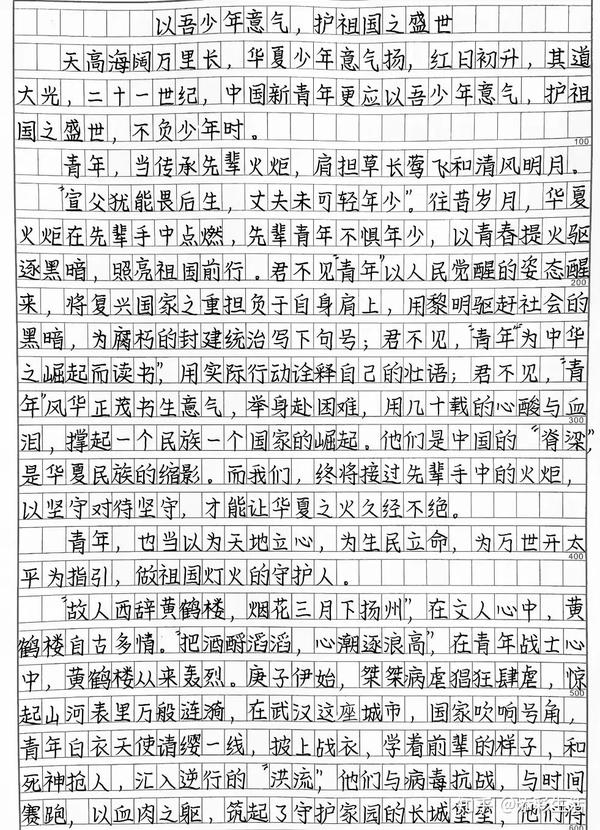 以吾少年意气，护祖国之盛世
天高海阔万里长，华夏少年意气扬，红日初升，其道
大光，二十一世纪，中国新青年更应以吾少年意气，护祖
国之盛世，不负少年时。
100
青年，当传承先辈火炬，肩担草长莺飞和清风明月。
“宣父犹能畏后生，丈夫未可轻年少”。往昔岁月，华夏
火炬在先辈手中点燃，先辈青年不惧年少，以青春提火驱
逐黑暗，照亮祖国前行。君不见“青年”以人民觉醒的姿态醒
200
来，将复兴国家之重担负于自身肩上，用黎明驱赶社会的
黑暗，为腐朽的封建统治写下句号；君不见，“青年”为中华
之崛起而读书”，用实际行动诠释自己的壮语；君不见，“青
年”风华正茂书生意气，举身赴困难，用几十载的心酸与血
300
泪，撑起一个民族一个国家的崛起。他们是中国的“脊梁”，
是华夏民族的缩影。而我们，终将接过先辈手中的火炬，
以坚守对待坚守，才能让华夏之火久经不绝。
青年，也当以为天地立心，为生民立命，为万世开太
400
平为指引，做祖国灯火的守护人。
“故人西辞黄鹤楼，烟花三月下扬州”，在文人心中，黄
鹤楼自古多情。“把酒酹滔滔，心潮逐浪高”，在青年战士心
中，黄鹤楼从来轰烈。庚子伊始，桀桀病虐猖狂肆虐，惊
500
起山河表里万般涟漪，在武汉这座城市，国家吹响号角，
青年白衣天使请缨一线，披上战衣，学着前辈的样子，和
死神抢人，汇入逆行的“洪流”，他们与病毒抗战，与时间
赛跑，以血肉之躯，筑起了守护家园的长城堡垒，他们将
600
知乎